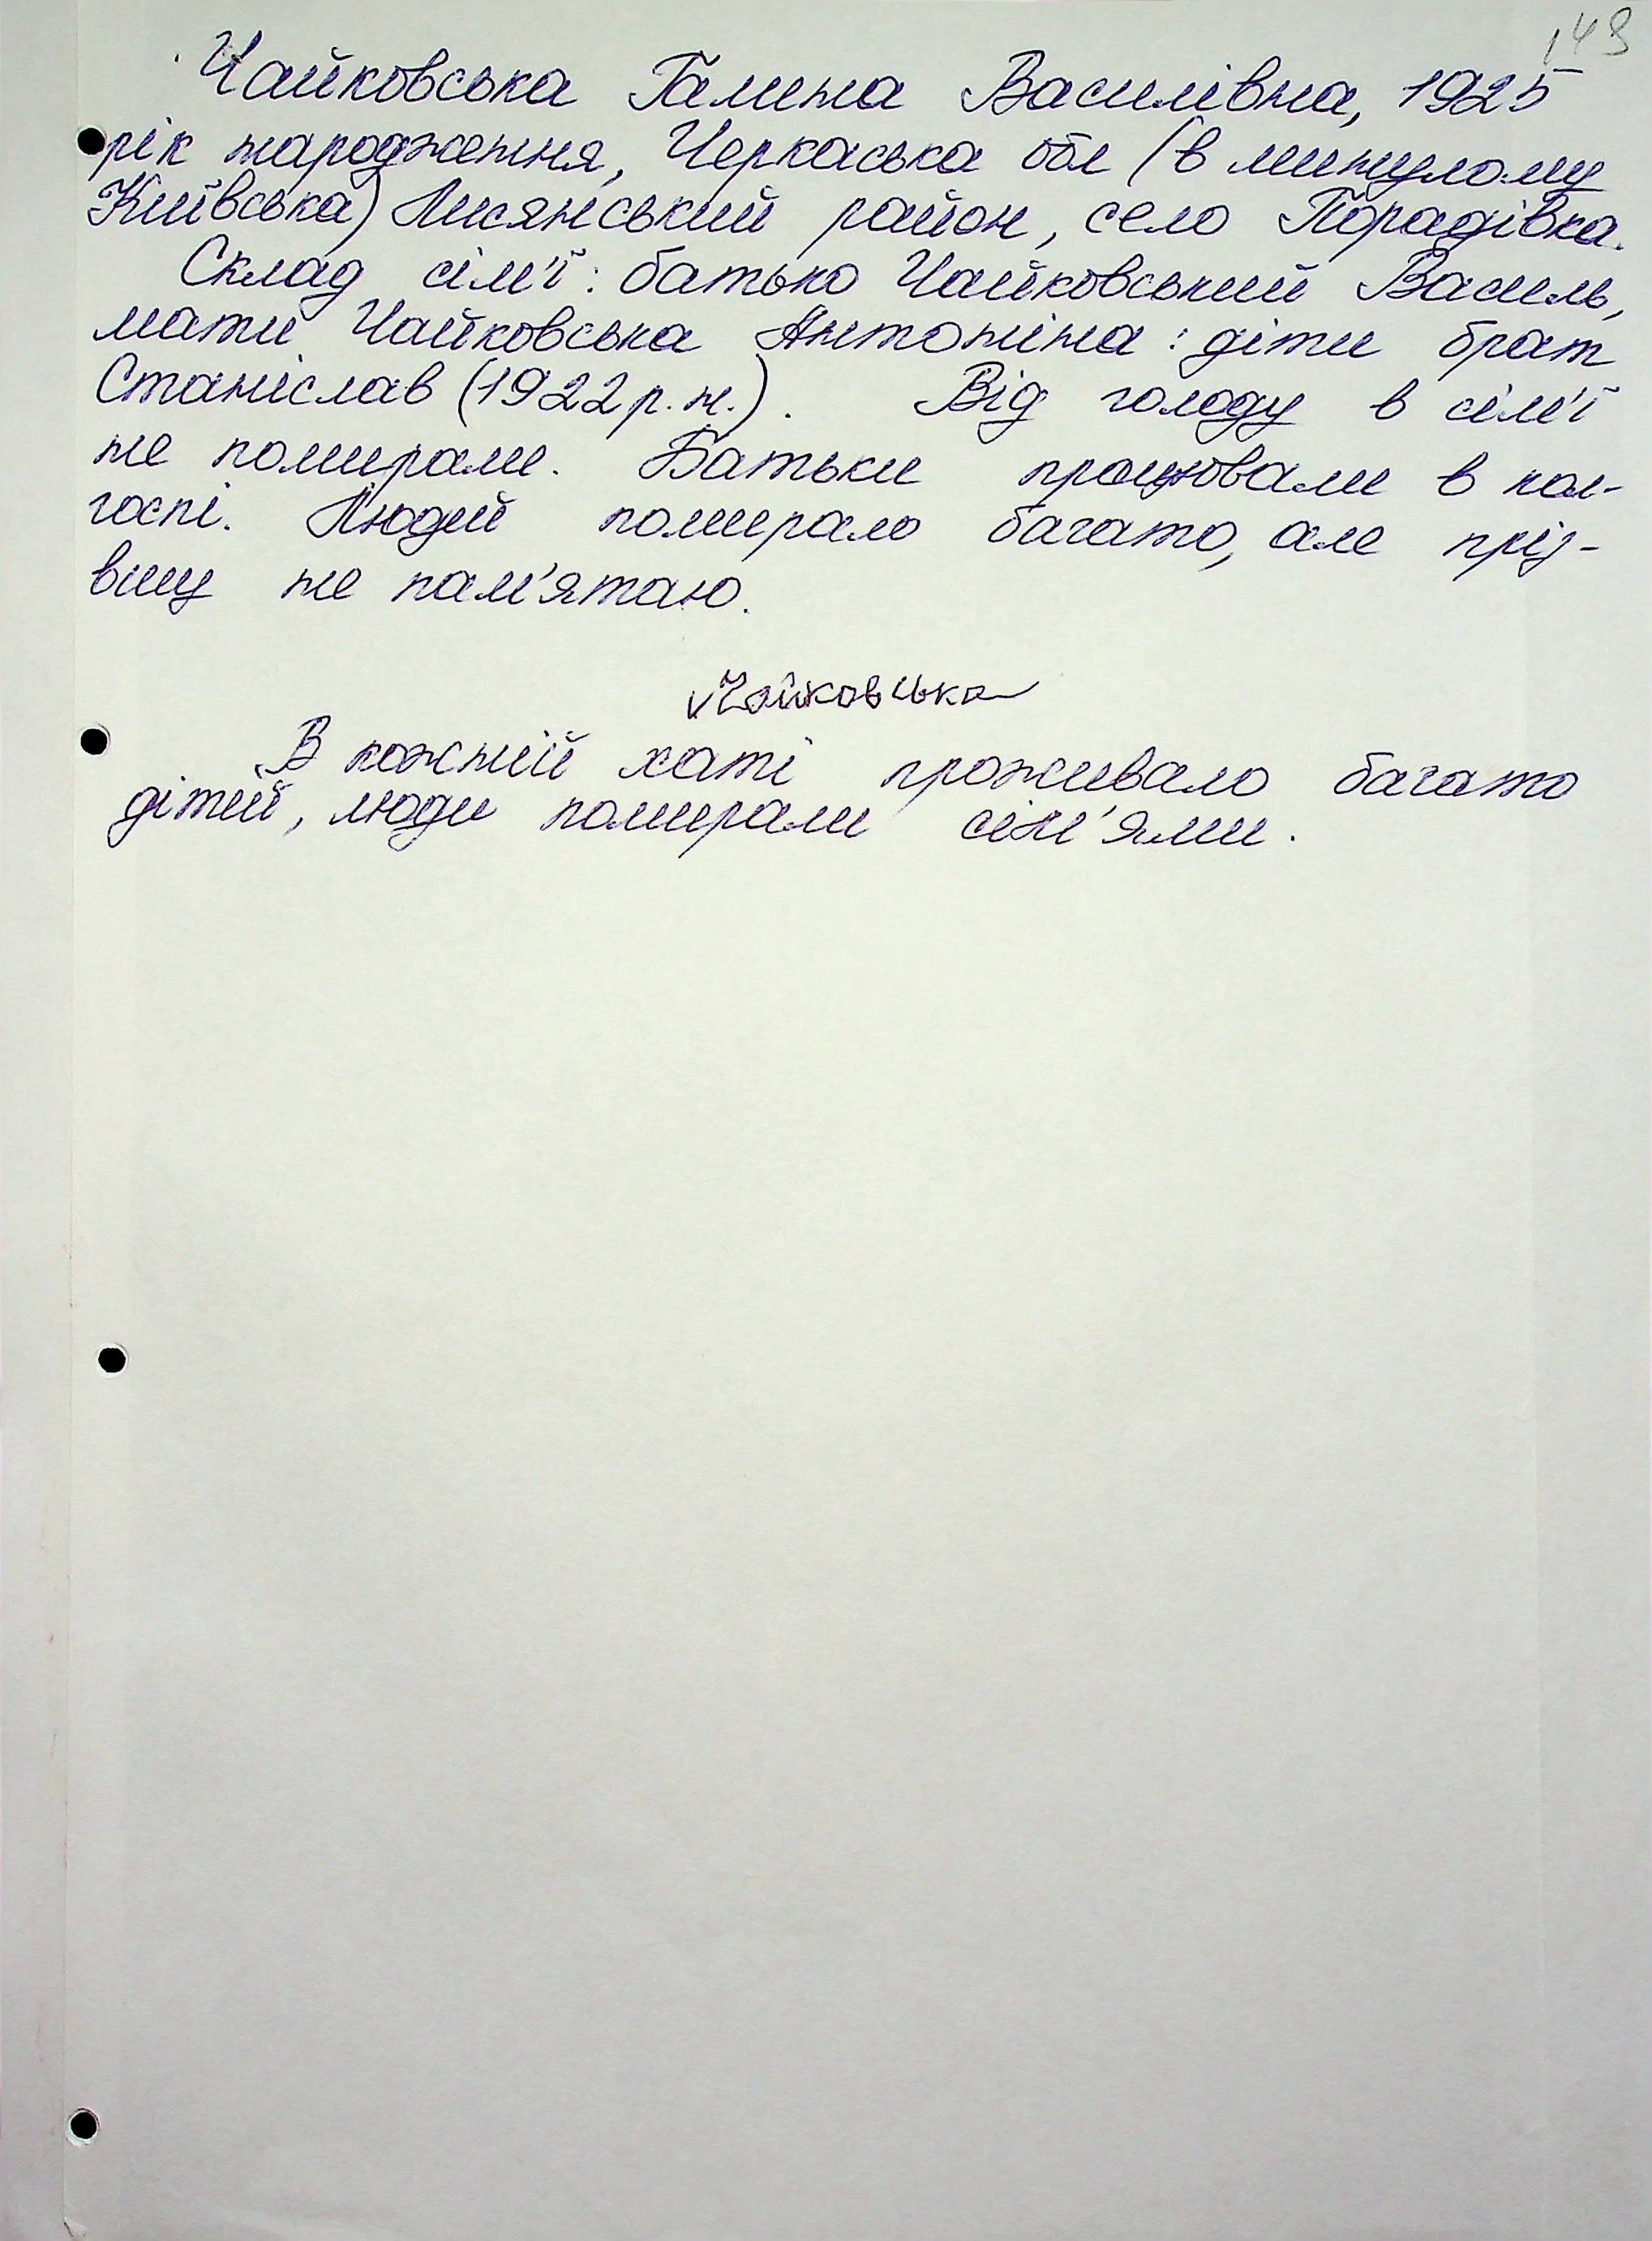 143
Чайковська Галина Василівна, 1925
рік народження, Черкаська обл (в минулому
Київська) Лисянський район, село Порадівка.
Склад сім'ї: батько Чайковський Василь,
мати Чайковська Антоніна: діти брат
Станіслав (1922 р.н.). Від голоду в сім'ї
не помирали. Батьки працювали в кол-
госпі. Людей помирало багато, але пріз-
вищ не пам'ятаю.
Чайковська
В кожній хаті проживало багато
дітей, люди помирали сім'ями.